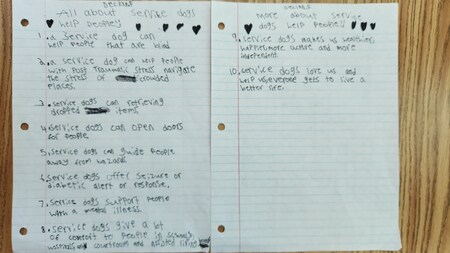 All about service dogs
help people?
1. a service dog can
help people that are blind
2. a service dog can help people
with Post Traumatic Stress navigate
the stress of crowded
places.
3. service dogs can retrieving
dropped items
4. service dogs can open doors
for people
5. service dogs can guide people
away from hazard
6. service dogs offer seizure or
diabetic alert or response.
7. service dogs support people
with a mental illness
8. service dogs give a lot
of comfort to people in schools
and courtroom and assisted living
more about service
dogs help people?
9. service dogs makes us
and more
independent.
10. service dogs love us and
help us everyone gets to live a
better life.